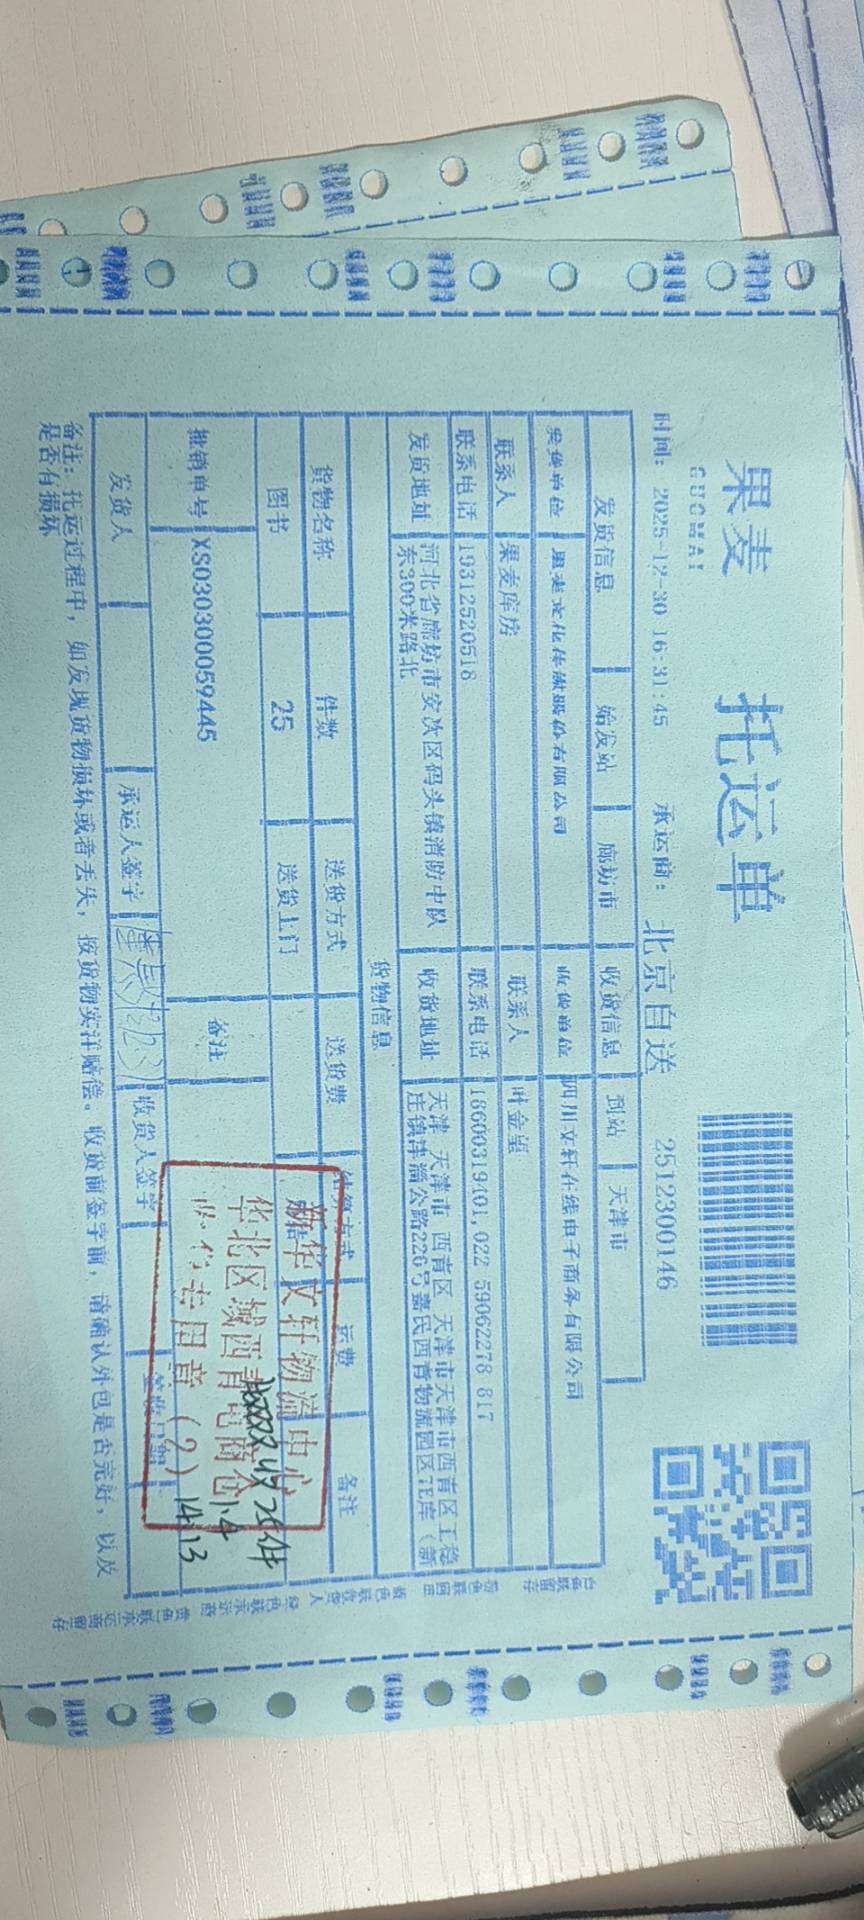 果麦
GUOMAI
托运单
时间: 2025-12-30 16:31:45 承运商: 北京自送 2512300146
发货信息 始发站 廊坊市 收货信息 到站 天津市
发货单位 果麦文化传媒股份有限公司 收货单位 四川文轩在线电子商务有限公司
联系人 果麦库房 联系人 叶金望
联系电话 19312520518 联系电话 18600319101,022 59062278 817
发货地址 河北省廊坊市安次区码头镇消防中队 收货地址 天津 天津市 西青区 天津市天津市西青区王稳
东300米路北 庄镇津淄公路226号嘉民西青物流园区7E库(新
货物信息
货物名称 件数 送货方式 送货费 结算方式 运费 备注
图书 25 送货上门
批销单号 XS030300059445 备注
发货人 承运人签字 收货人签字 签收日期
备注: 托运过程中, 如发现货物损坏或者丢失, 按货物实洋赔偿。收货前签字前, 请确认外包是否完好, 以及
是否有损坏
新华文轩物流中心
华北区域西青电商仓
收货专用章(2)
收25件
1.4
14:13